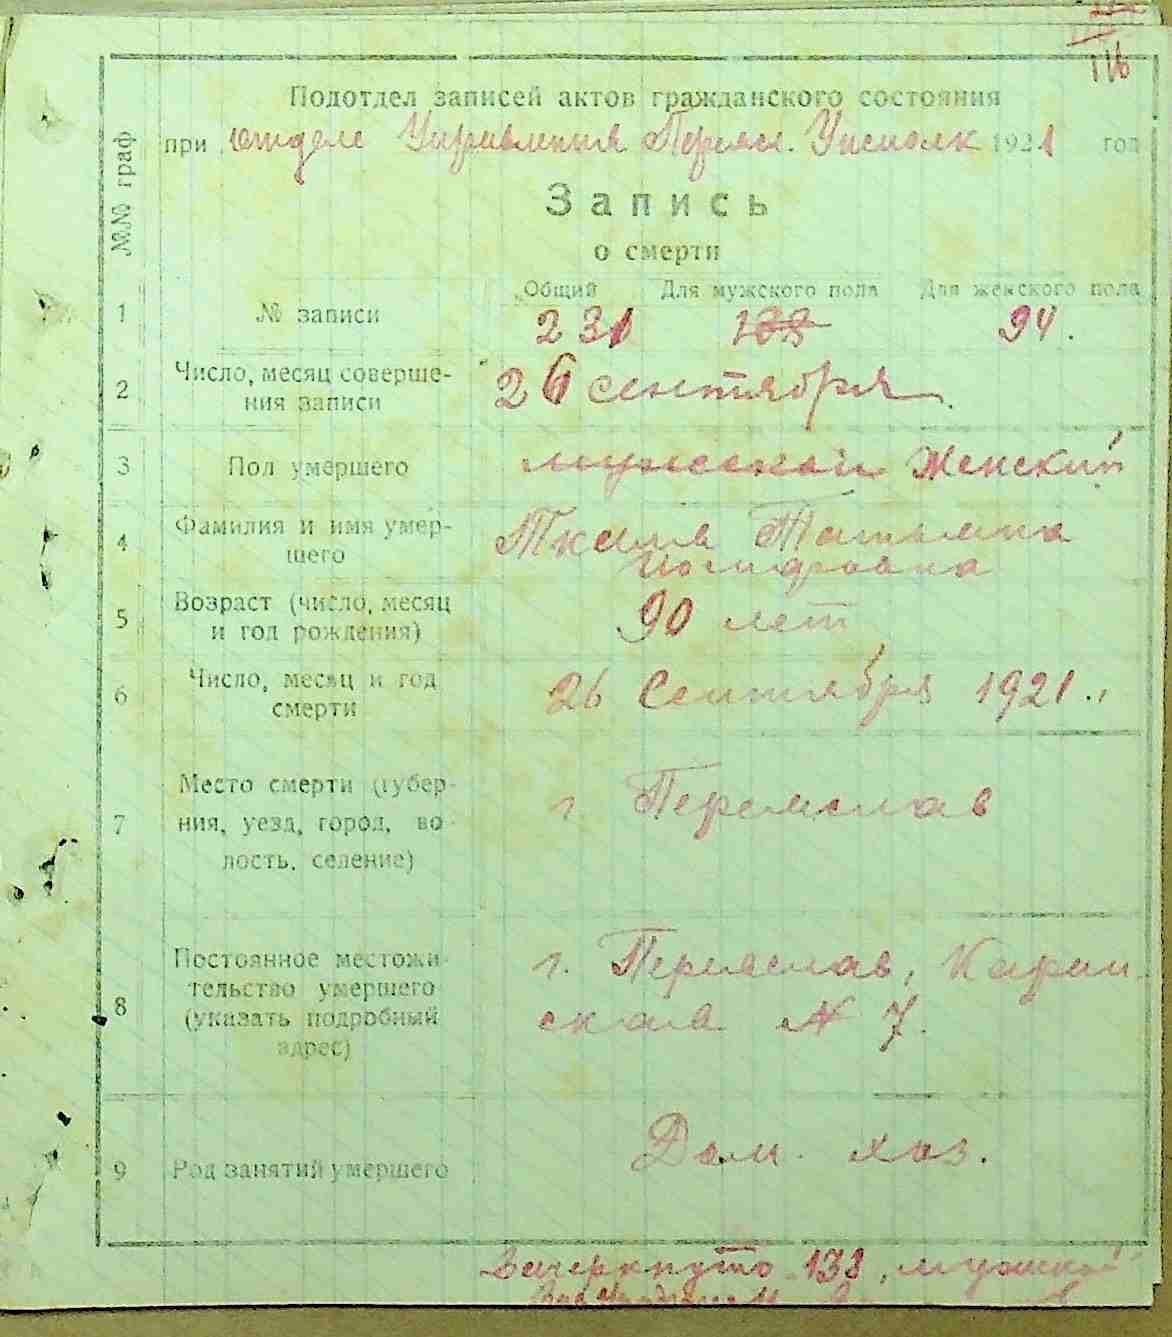 116
Подотдел записей актов гражданского состояния
при отделе Управления Переясл. 1921 год
№№ граф
Запись
о смерти
Общий Для мужского пола Для женского пола
1 № записи 231 133 94.
2 Число, месяц соверше-
ния записи
26 сентября.
3 Пол умершего мужской Женский
4 Фамилия и имя умер-
шего
Татьяна
5 Возраст (число, месяц
и год рождения)
90 лет
6 Число, месяц и год
смерти
26 Сентября 1921.
7 Место смерти (губер-
ния, уезд, город, во-
лость, селение)
г Переяслав
8 Постоянное местожи-
тельство умершего
(указать подробный
адрес)
г. Переяслав, Каран
ская № 7.
9 Род занятий умершего Дом. хоз.
Зачеркнуто 133, мужской